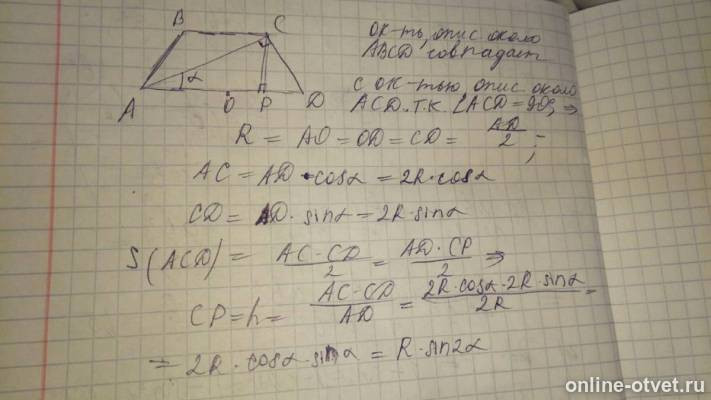 B C
α
A O P D
ок-ть, опис около
ABCD совпадает
с ок-тью опис около
ACD. т.к. ∠ACD = 90°, ⇒
R = AO = OD = CD = AD/2 ;
AC = AD · cosα = 2R · cosα
CD = AD · sinα = 2R · sinα
S(ACD) = AC · CD/2 = AD · CP/2 ⇒
CP = h = AC · CD/AD = 2R · cosα · 2R · sinα/2R =
= 2R · cosα · sinα = R · sin2α
online-otvet.ru